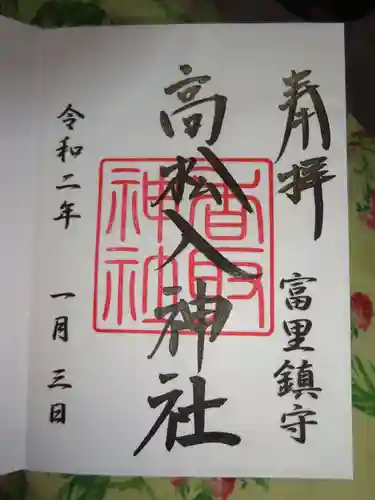 奉拝 富里鎮守
高松入神社
香取神社
令和二年 一月 三日